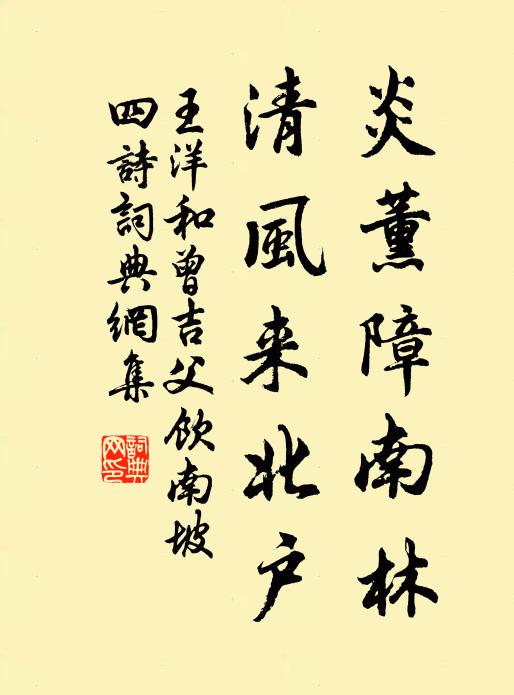 炎薰障南林
清風来北户
王洋和曾吉父飲南坡
四詩詞典網集
詞典
网印